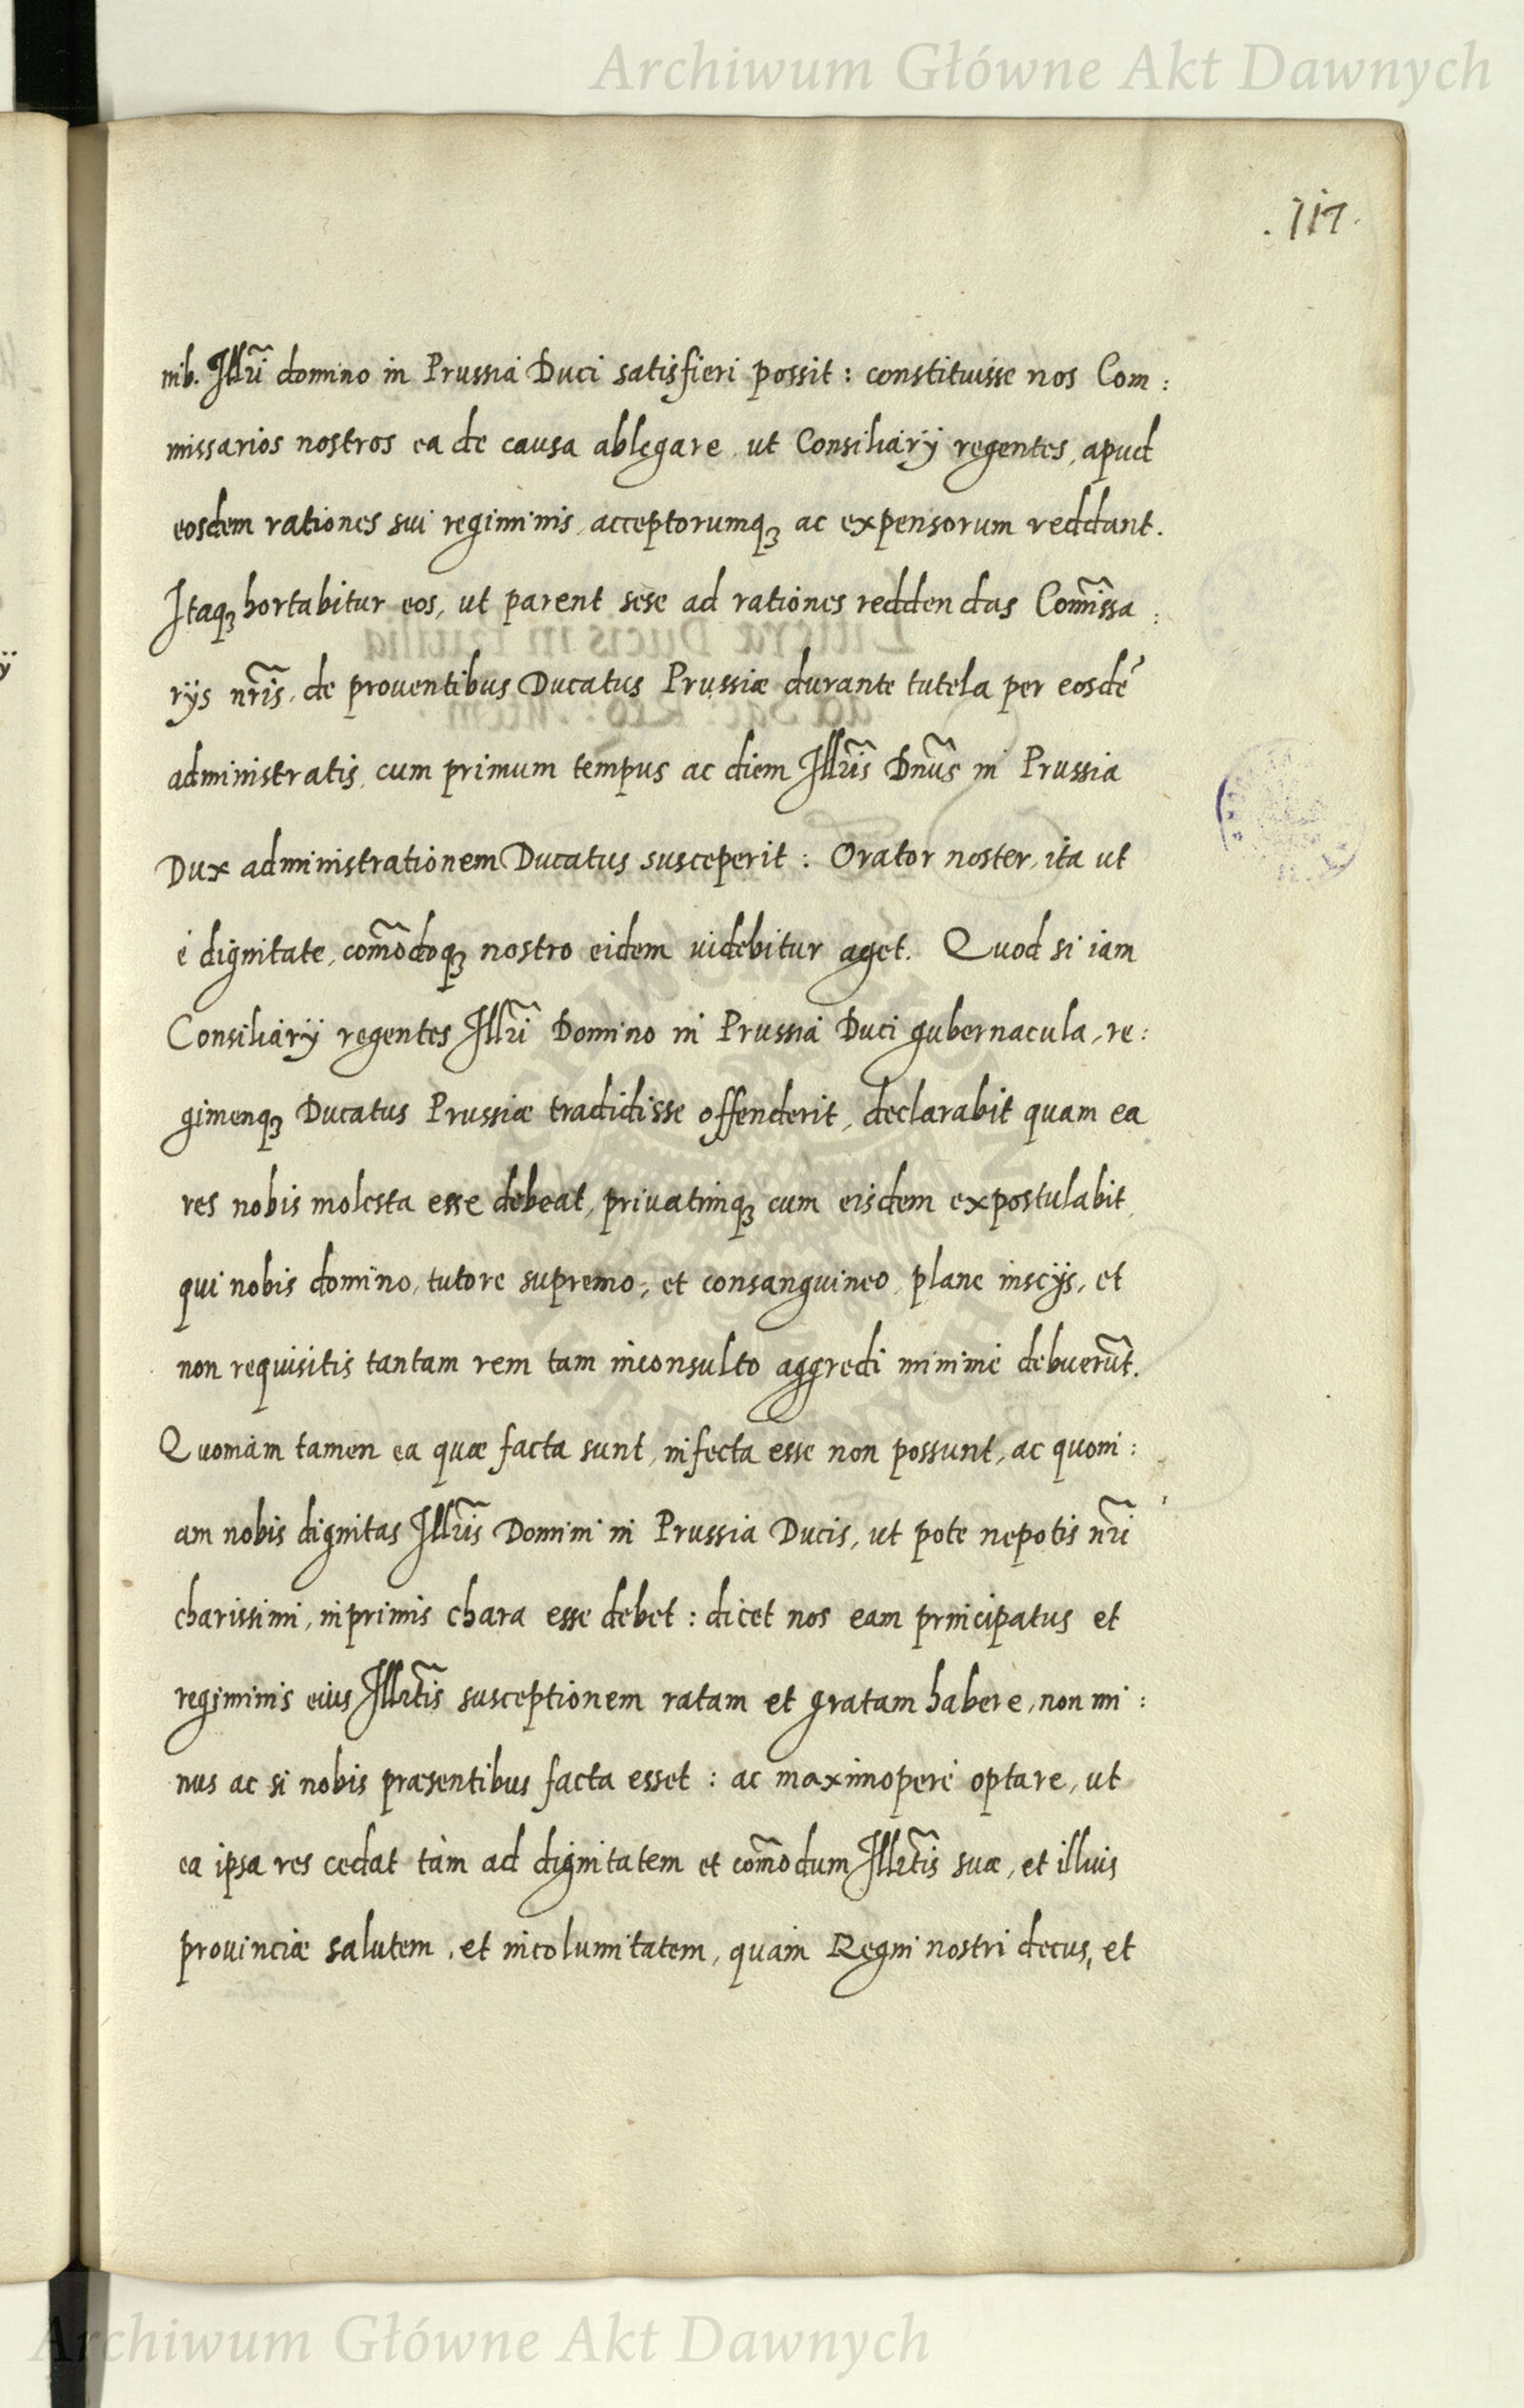 Archiwum Główne Akt Dawnych
.117.
nib. Illrĩ domino in Prussia Duci satisfieri possit : constituisse nos Com :
missarios nostros ea de causa ablegare, ut Consiliarÿ regentes, apud
eosdem rationes sui regiminis, acceptorumqꝫ ac expensorum reddant.
Itaqꝫ hortabitur eos, ut parent sese ad rationes reddendas Com̃issa :
rÿs nr̃is, de prouentibus Ducatus Prussiæ durante tutela per eosdẽ
administratis, cum primum tempus ac diem Illr̃is Dnũs in Prussia
Dux administrationem Ducatus susceperit : Orator noster, ita ut
é dignitate, com̃odoqꝫ nostro eidem uidebitur aget. Quod si iam
Consiliarÿ regentes Illr̃i Domino in Prussia Duci gubernacula, re :
gimenqꝫ Ducatus Prussiæ tradidisse offenderit, declarabit quam ea
res nobis molesta esse debeat, priuatimqꝫ cum eisdem expostulabit,
qui nobis domino, tutore supremo, et consanguineo, plane inscÿs, et
non requisitis tantam rem tam inconsulto aggredi minimè debuerũt.
Quoniam tamen ea quæ facta sunt, infecta esse non possunt, ac quoni :
am nobis dignitas Illr̃is Domini in Prussia Ducis, ut pote nepotis nr̃i
charissimi, inprimis chara esse debet : dicet nos eam principatus et
regiminis eius Illrt̃is susceptionem ratam et gratam habere, non mi :
nus ac si nobis præsentibus facta esset : ac maximoperè optare, ut
ea ipsa res cedat tàm ad dignitatem et com̃odum Illrt̃is suæ, et illius
prouinciæ salutem, et incolumitatem, quam Regni nostri decus, et
Archiwum Główne Akt Dawnych